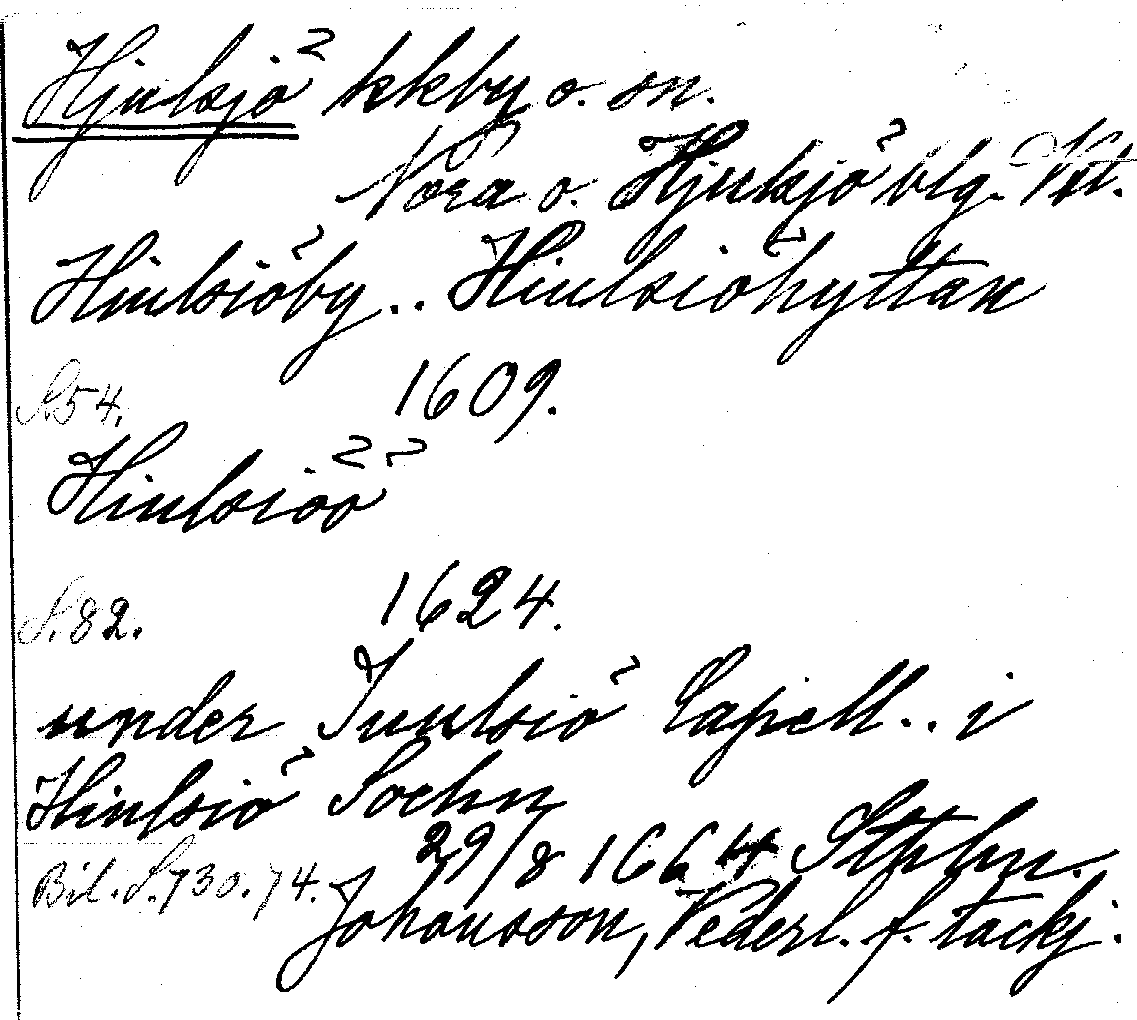 Hjulsjö kkby o. sn.
Nora o. Hjulsjö blg. Vstl.
Hiulsiöby.. Hiulsiöhyttan
S. 54. 1609.
Hiulsiöö
S. 82. 1624.
under Juulsiö Capell.. i
Hiulsiö Sochn
29/8 1664 Sthlm.
Bil. S. 730. 74. Johansson, Vederl. f. tackj.